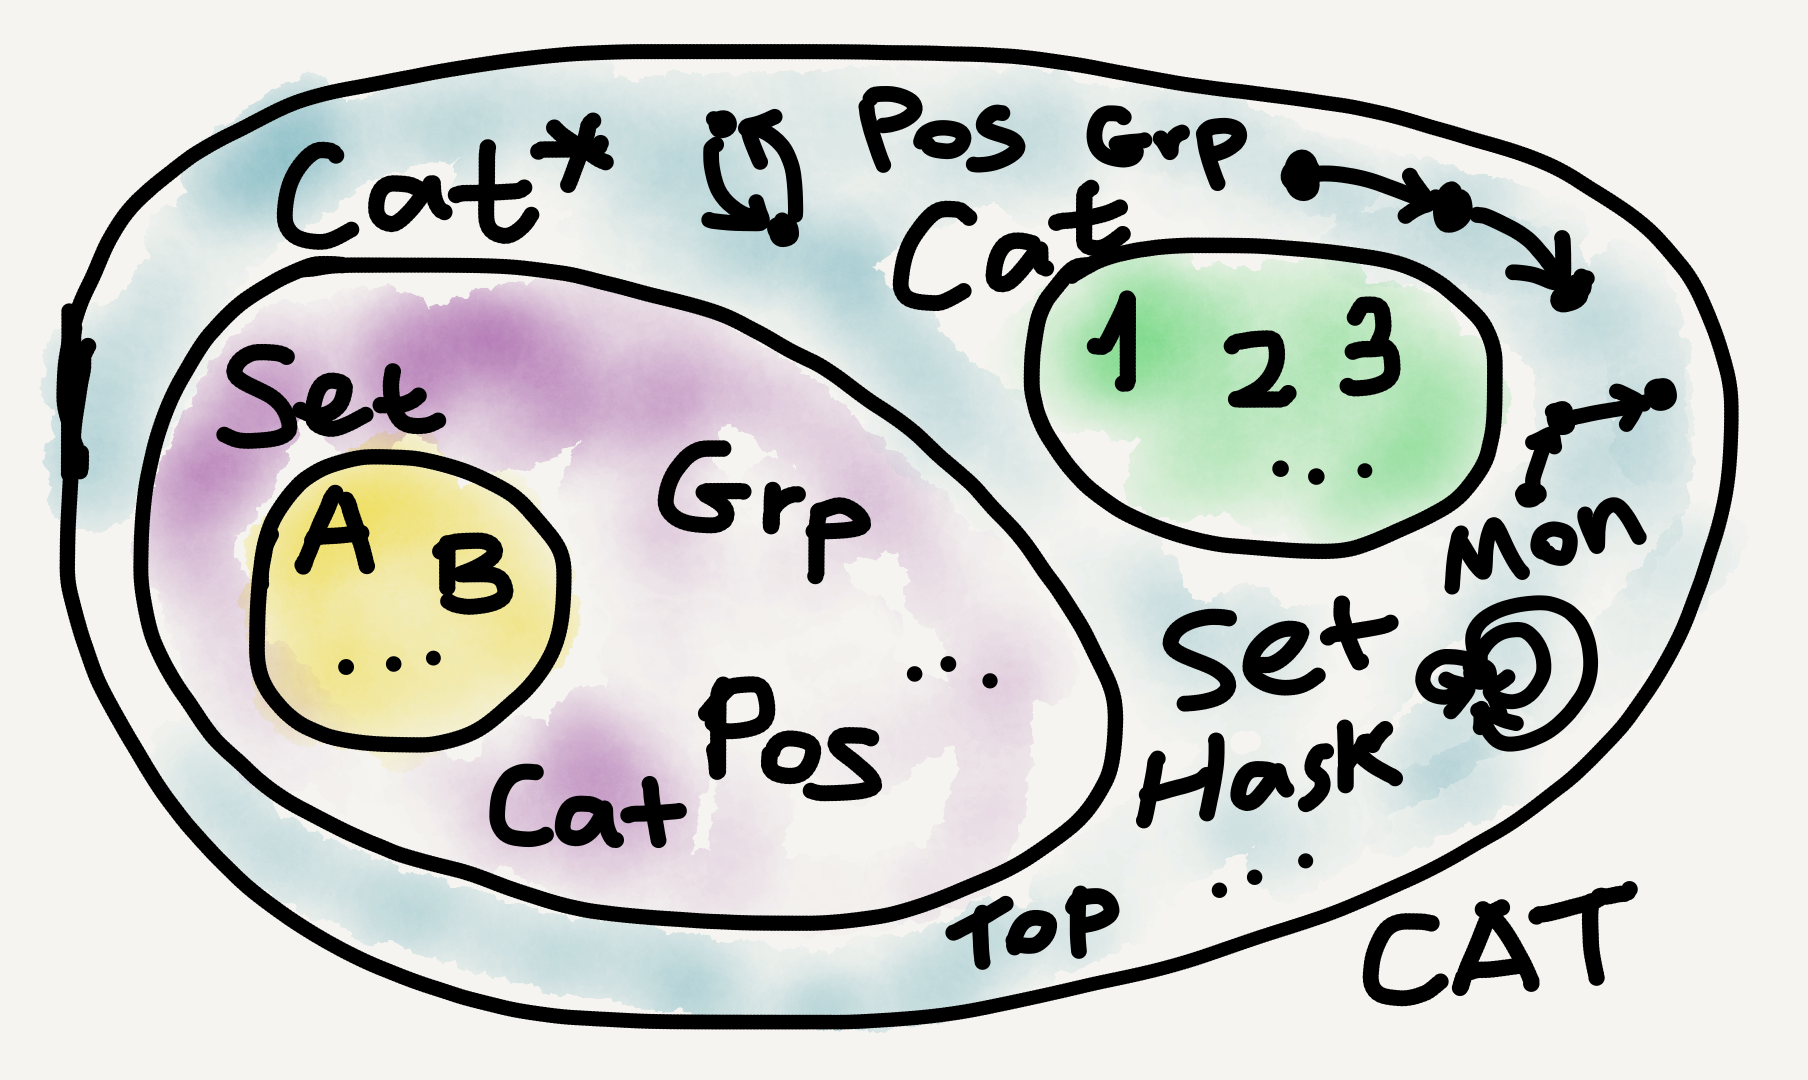 Cat*
Pos Grp
Cat
1 2 3
...
Set
A B
...
Grp
...
Pos
Cat
Mon
Set
Hask
...
Top
CAT